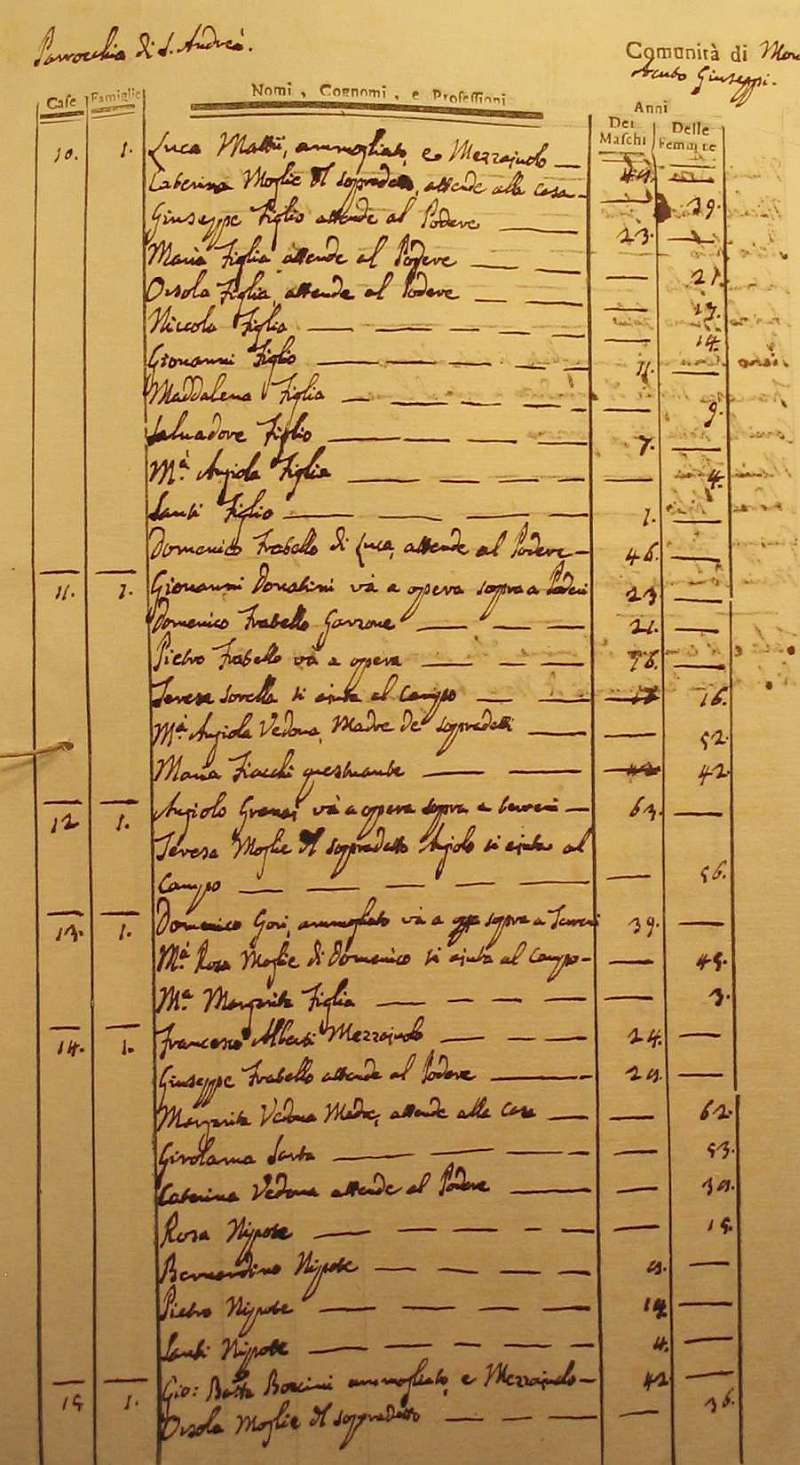 Parrocchia di S. Andrea.
Comunità di
Giuseppi.
Case Famiglie Nomi, Cognomi, e Professioni Anni
Dei Maschi Delle Femmine
10. 1. Luca Mattii, ammogliato, e Mezzajuolo — 49. —
Caterina Moglie del sopradetto, attende alla casa — — 39.
Giuseppe Figlio attende al Podere — 23. —
Maria Figlia attende al Podere — — 21.
Orsola Figlia attende al Podere — — 17.
Niccola Figlia — — 14.
Giovanni Figlio — 11. —
Maddalena Figlia — — 9.
Salvadore Figlio — 7. —
M.a Angiola Figlia — — 4.
Santi Figlio — 1. —
Domenico Fratello di Luca, attende al Podere — 46. —
11. 1. Giovanni Donatini và a opera sopra a Poderi 23 —
Domenico Fratello Garzone — 21. —
Pietro Fratello và a opera — 16. —
Teresa Sorella si ajuta al Campo — 16.
M.a Angiola Vedova, Madre de sopradetti — — 52.
Maria Fiacchi questuante — 42
12 1. Angiolo và a opera sopra a terreni — 63. —
Teresa Moglie del sopradetto Angiolo si ajuta al
Campo — — 56.
13. 1. Domenico Gori, ammogliato và a opa sopra a Terreni 39. —
M.a Rosa Moglie di Domenico si ajuta al Campo — — 45.
M.a Margarita Figlia — — 3.
14. 1. Francesco Alberti Mezzajuolo — 24. —
Giuseppe Fratello attende al Podere — 29. —
Margarita Vedova Madre, attende alla Casa — — 62.
Girolama — — 53.
Caterina Vedova attende al Podere — — 39.
Rosa Nipote — — 15.
Bernardino Nipote — 9. —
Pietro Nipote — 14 —
Santi Nipote — 4. —
15 1. Gio: Batta ammogliato, e Mezzajuolo — 42 —
Orsola Moglie del sopradetto — — 36.